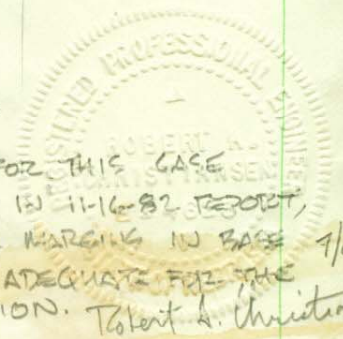 REGISTERED PROFESSIONAL ENGINEER
ROBERT A.
CHRISTIANSEN
FOR THIS CASE
IN 11-16-82 REPORT,
MARGINS IN BASE
ADEQUATE FOR THE
ION. Robert A. Christia